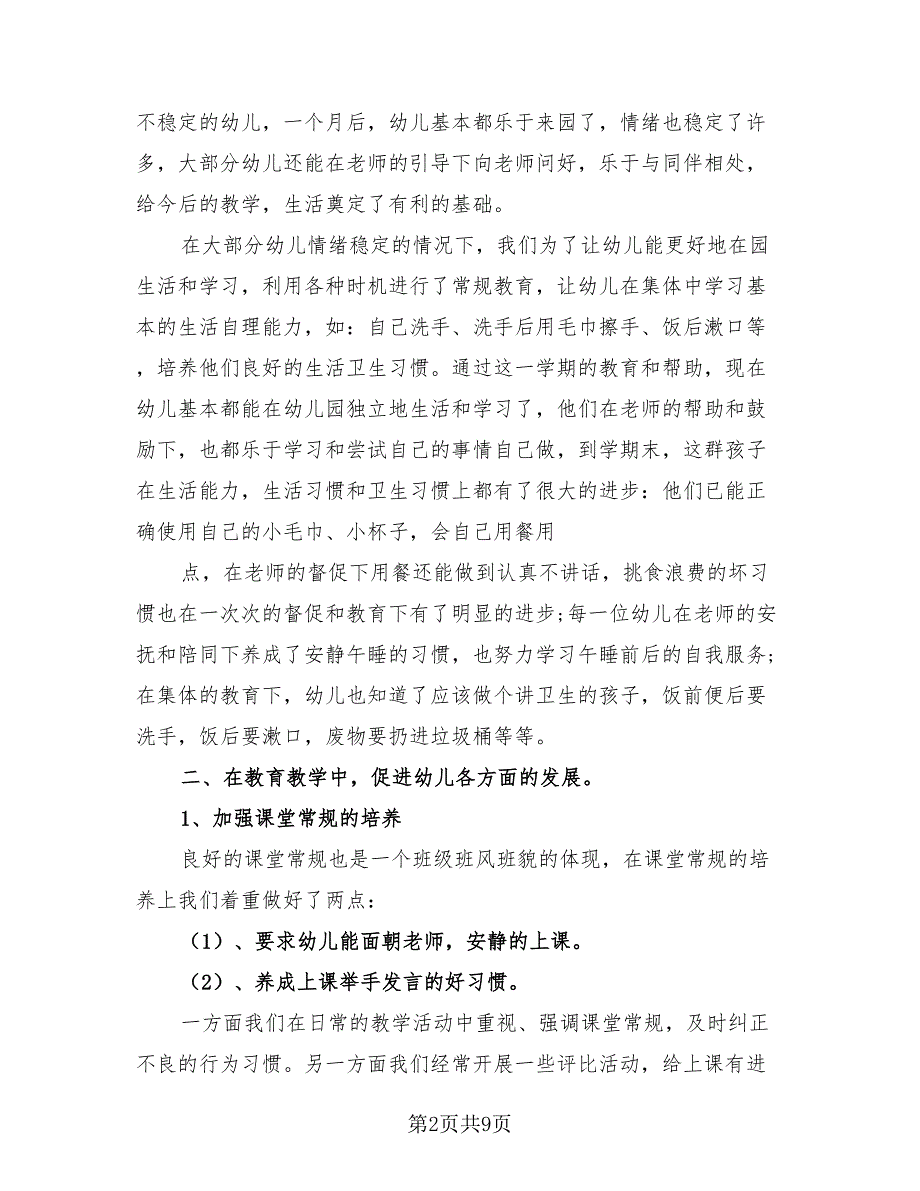 不稳定的幼儿，一个月后，幼儿基本都乐于来园了，情绪也稳定了许
多，大部分幼儿还能在老师的引导下向老师问好，乐于与同伴相处，
给今后的教学，生活奠定了有利的基础。
在大部分幼儿情绪稳定的情况下，我们为了让幼儿能更好地在园
生活和学习，利用各种时机进行了常规教育，让幼儿在集体中学习基
本的生活自理能力，如：自己洗手、洗手后用毛巾擦手、饭后漱口等
，培养他们良好的生活卫生习惯。通过这一学期的教育和帮助，现在
幼儿基本都能在幼儿园独立地生活和学习了，他们在老师的帮助和鼓
励下，也都乐于学习和尝试自己的事情自己做，到学期末，这群孩子
在生活能力，生活习惯和卫生习惯上都有了很大的进步：他们已能正
确使用自己的小毛巾、小杯子，会自己用餐用
点，在老师的督促下用餐还能做到认真不讲话，挑食浪费的坏习
惯也在一次次的督促和教育下有了明显的进步;每一位幼儿在老师的安
抚和陪同下养成了安静午睡的习惯，也努力学习午睡前后的自我服务;
在集体的教育下，幼儿也知道了应该做个讲卫生的孩子，饭前便后要
洗手，饭后要漱口，废物要扔进垃圾桶等等。
二、在教育教学中，促进幼儿各方面的发展。
1、加强课堂常规的培养
良好的课堂常规也是一个班级班风班貌的体现，在课堂常规的培
养上我们着重做好了两点：
（1）、要求幼儿能面朝老师，安静的上课。
（2）、养成上课举手发言的好习惯。
一方面我们在日常的教学活动中重视、强调课堂常规，及时纠正
不良的行为习惯。另一方面我们经常开展一些评比活动，给上课有进
第2页共9页